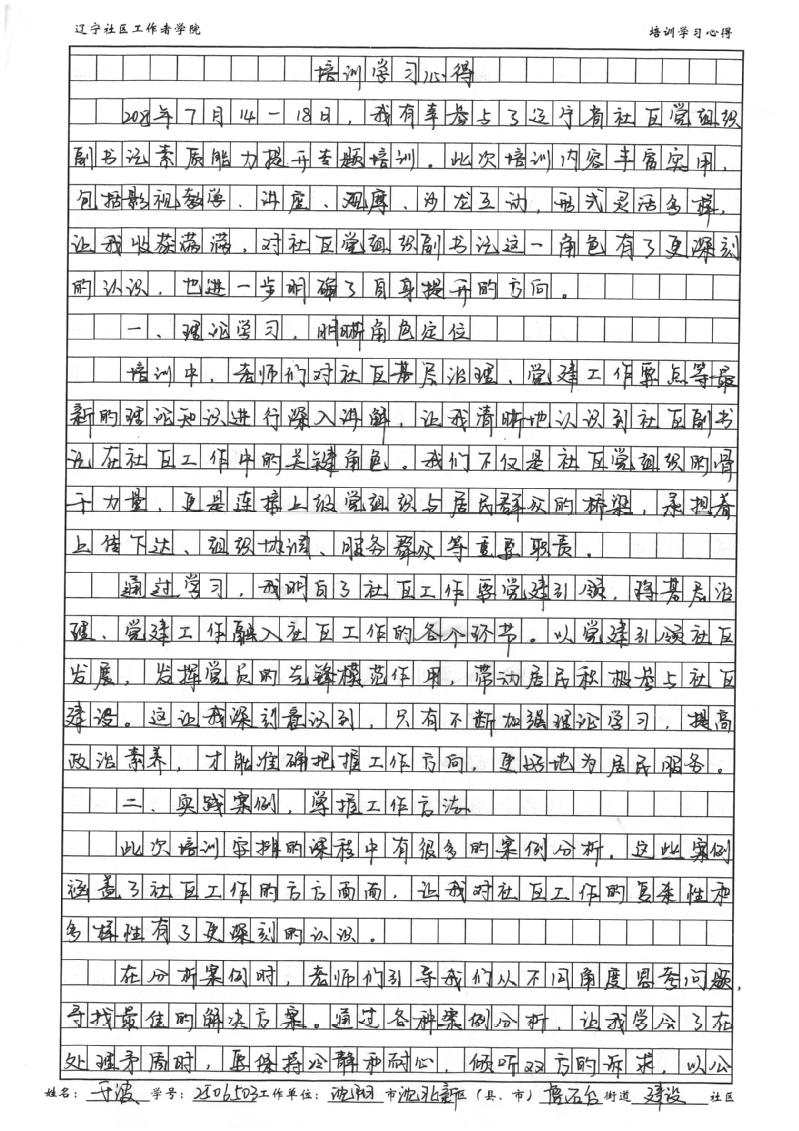 辽宁社区工作者学院 培训学习心得
培训学习心得
2025年7月14-18日,我有幸参与了辽宁省社区党组织
副书记素质能力提升专题培训。此次培训内容丰富实用,
包括影视教学、讲座、观摩、沙龙互动,形式灵活多样,
让我收获满满,对社区党组织副书记这一角色有了更深刻
的认识,也进一步明确了自身提升的方向。
一、理论学习,明晰角色定位
培训中,老师们对社区基层治理、党建工作要点等最
新的理论知识进行深入讲解,让我清晰地认识到社区副书
记在社区工作中的关键角色。我们不仅是社区党组织的骨
干力量,更是连接上级党组织与居民群众的桥梁,承担着
上传下达、组织协调、服务群众等重要职责。
通过学习,我明白了社区工作要党建引领,将基层治
理、党建工作融入社区工作的各个环节。以党建引领社区
发展,发挥党员的先锋模范作用,带动居民积极参与社区
建设。这让我深刻意识到,只有不断加强理论学习,提高
政治素养,才能准确把握工作方向,更好地为居民服务。
二、实践案例,掌握工作方法
此次培训安排的课程中有很多的案例分析,这些案例
涵盖了社区工作的方方面面,让我对社区工作的复杂性和
多样性有了更深刻的认识。
在分析案例时,老师们引导我们从不同角度思考问题,
寻找最佳的解决方案。通过各种案例分析,让我学会了在
处理矛盾时,要保持冷静和耐心,倾听双方的诉求,以公
姓名:于波 学号:2506503 工作单位:沈阳市沈北新区(县、市)财落街道 建设 社区